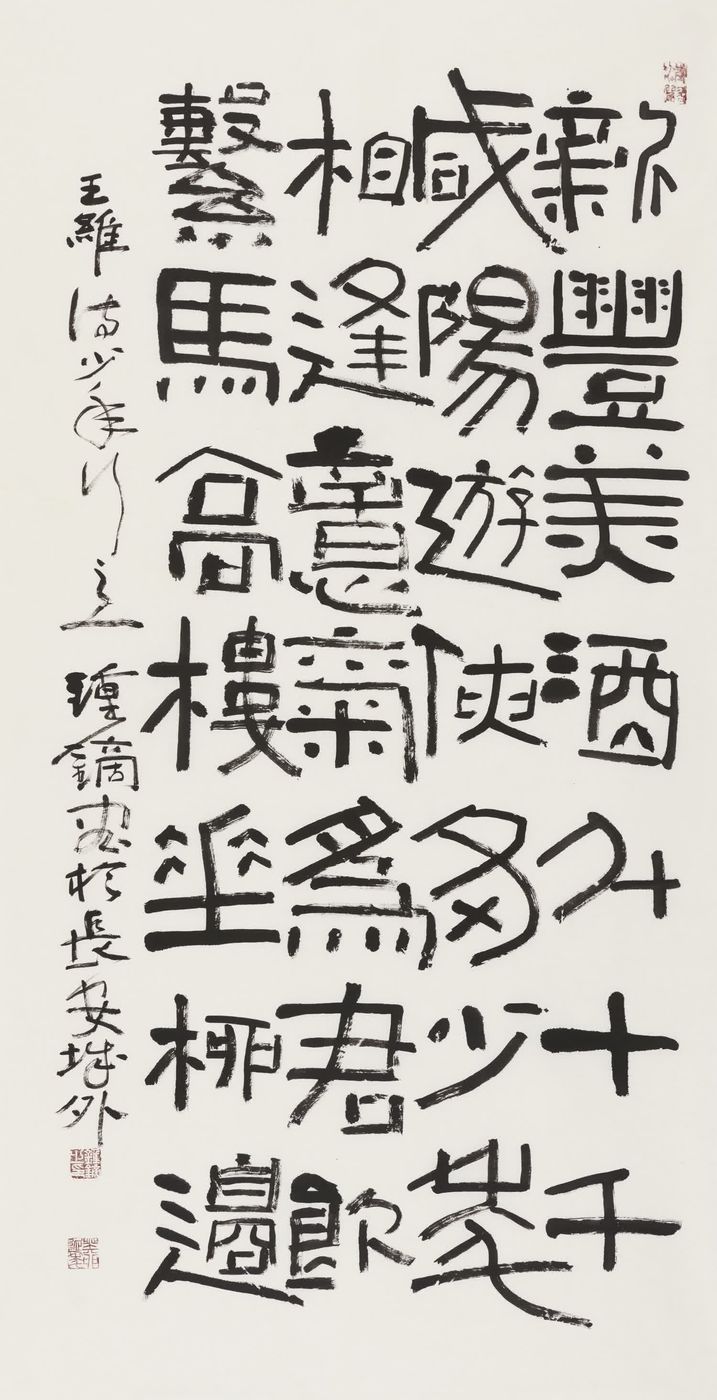 新豐美酒斗十千
咸陽遊俠多少年
相逢意氣爲君飲
繫馬高樓垂柳邊
王維詩少年行之一鏑書於長安城外